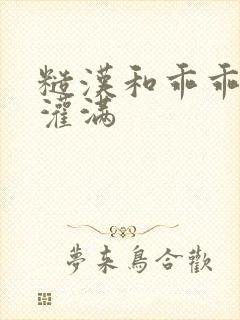 糙漢和乖乖
灌满
夢来鳥合歡